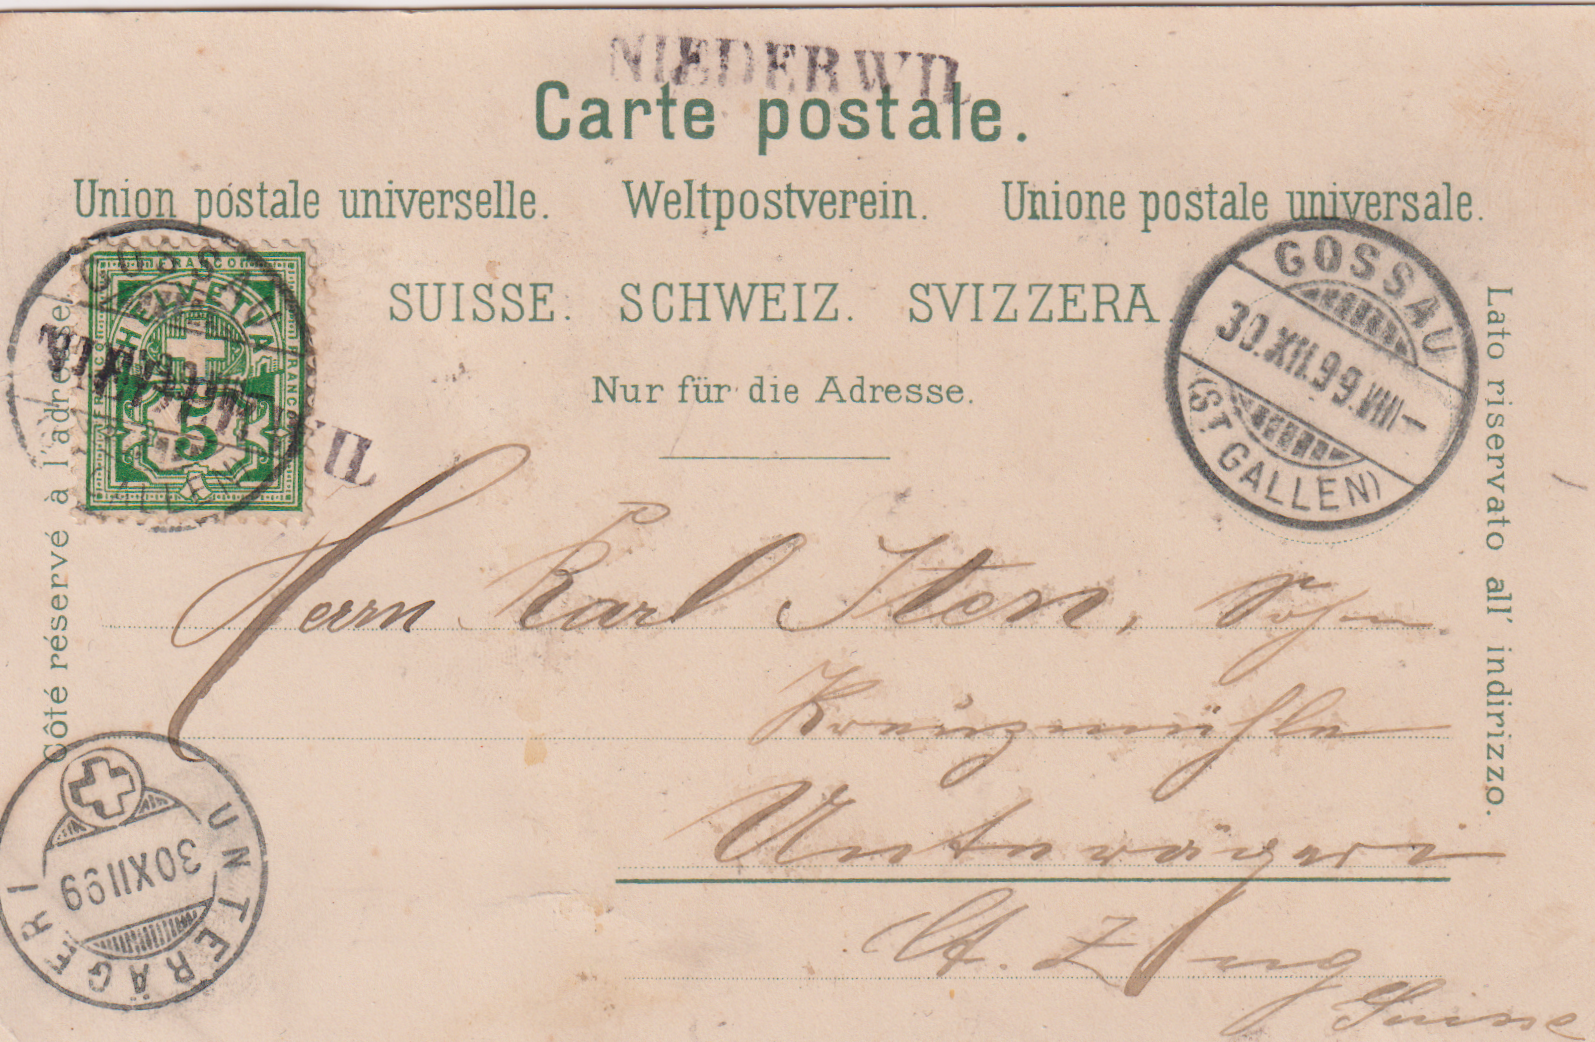 NIEDERWIL
Carte postale.
Union postale universelle. Weltpostverein. Unione postale universale.
SUISSE. SCHWEIZ. SVIZZERA.
Nur für die Adresse.
Côté réservé à l'adresse.
Lato riservato all' indirizzo.
FRANCO
HELVETIA
FRANCO
FRANCO
5
GOSSAU
GOSSAU
30.XII.99.VIII-
(ST GALLEN)
Herrn Karl Iten, Sohn
Kreuzmühle
Unterägeri
Ct. Zug
Suisse
UNTERÄGERI
30XII99